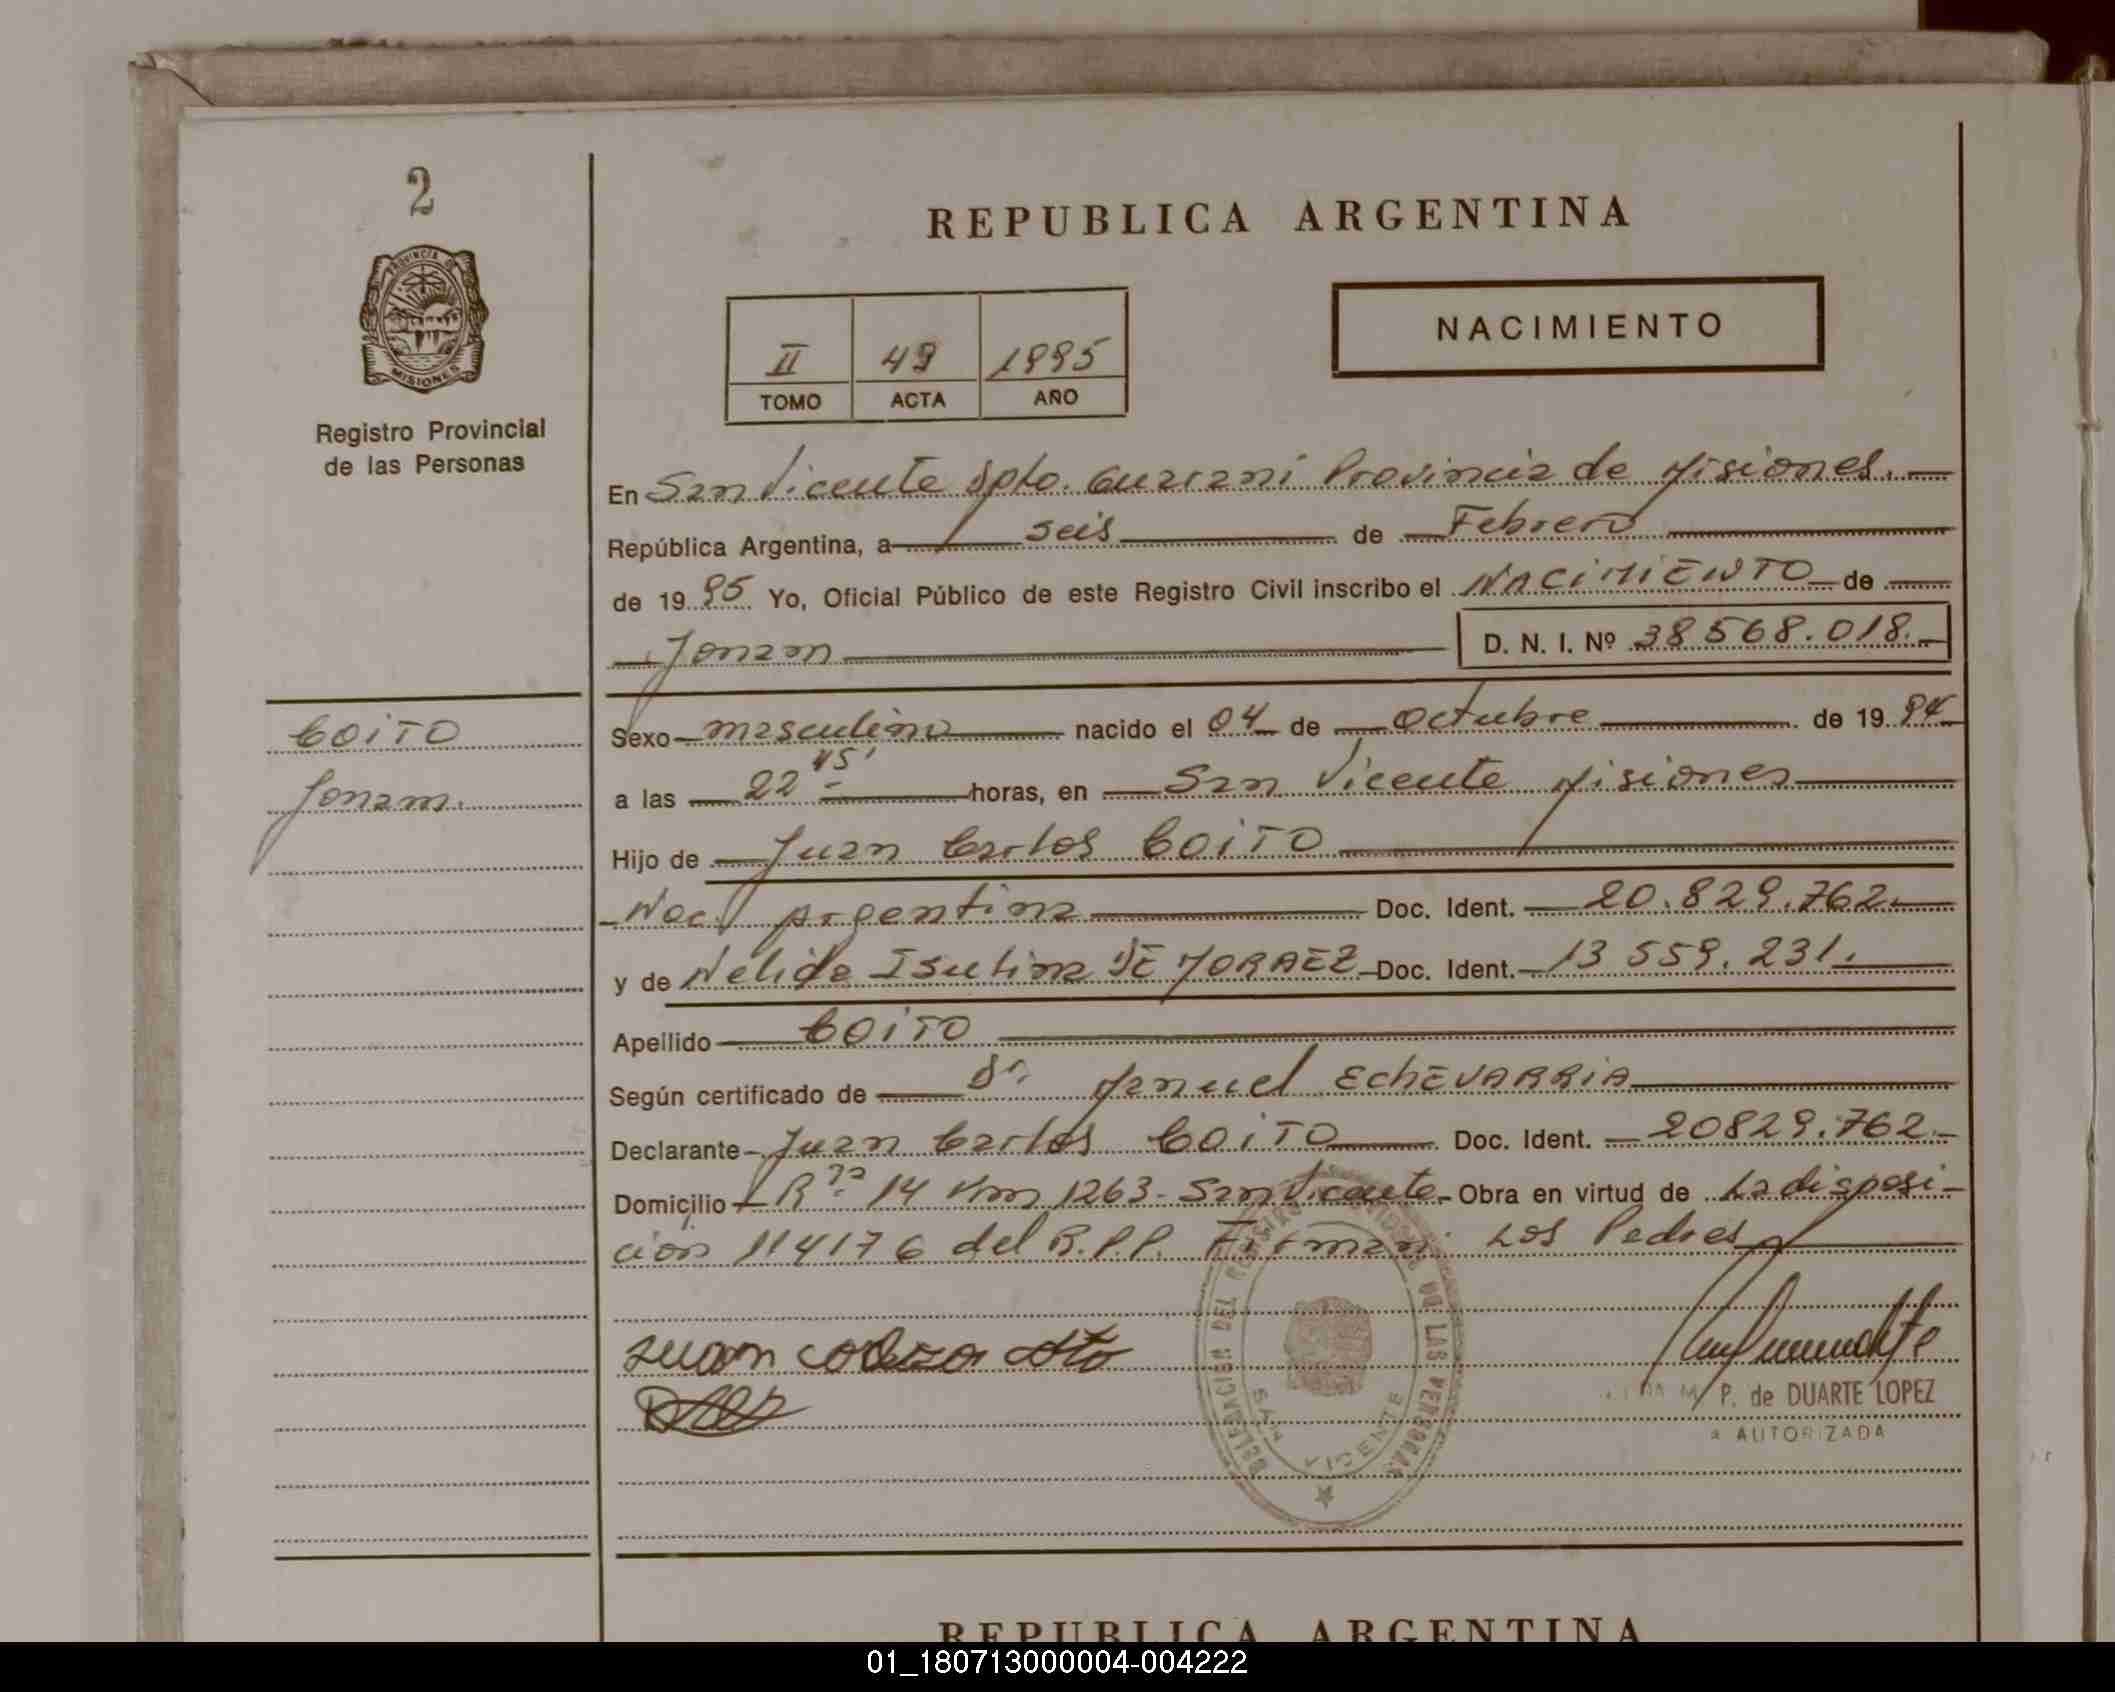 2
REPUBLICA ARGENTINA
PROVINCIA DE
MISIONES
NACIMIENTO
II 49 1995
TOMO ACTA AÑO
Registro Provincial
de las Personas
En San Vicente Dpto. Guarani Provincia de Misiones.
República Argentina, a seis de Febrero
de 1995 Yo, Oficial Público de este Registro Civil inscribo el NACIMIENTO de
Jonam D. N. I. Nº 38568.018.
COITO
Jonam.
Sexo masculino nacido el 04 de octubre de 1994
a las 22 45' horas, en San Vicente Misiones
Hijo de Juan Carlos COITO
Nac. Argentina Doc. Ident. 20.829.762.
y de Nelida Isulina DE MORAEZ Doc. Ident. 13 559.231.
Apellido COITO
Según certificado de Dr. Manuel ECHEVARRIA
Declarante Juan Carlos COITO Doc. Ident. 20829.762.
Domicilio 14 Km 1263. San Vicente Obra en virtud de La disposi-
ción 114176 del R.P.P. Firman: Los Padres
DELEGACION DEL REGISTRO DE LAS PERSONAS
SAN VICENTE
Juan
P. de DUARTE LOPEZ
AUTORIZADA
REPUBLICA ARGENTINA
01_180713000004-004222